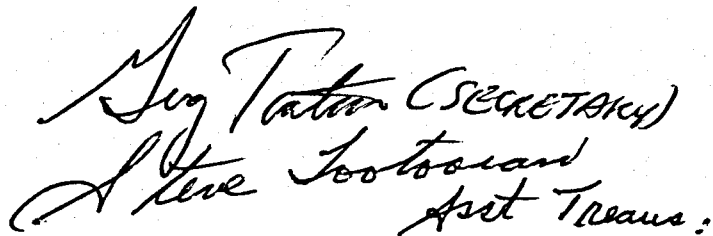 Greg Tatum (SECRETARY)
Steve Tootooian
Asst Treaus.